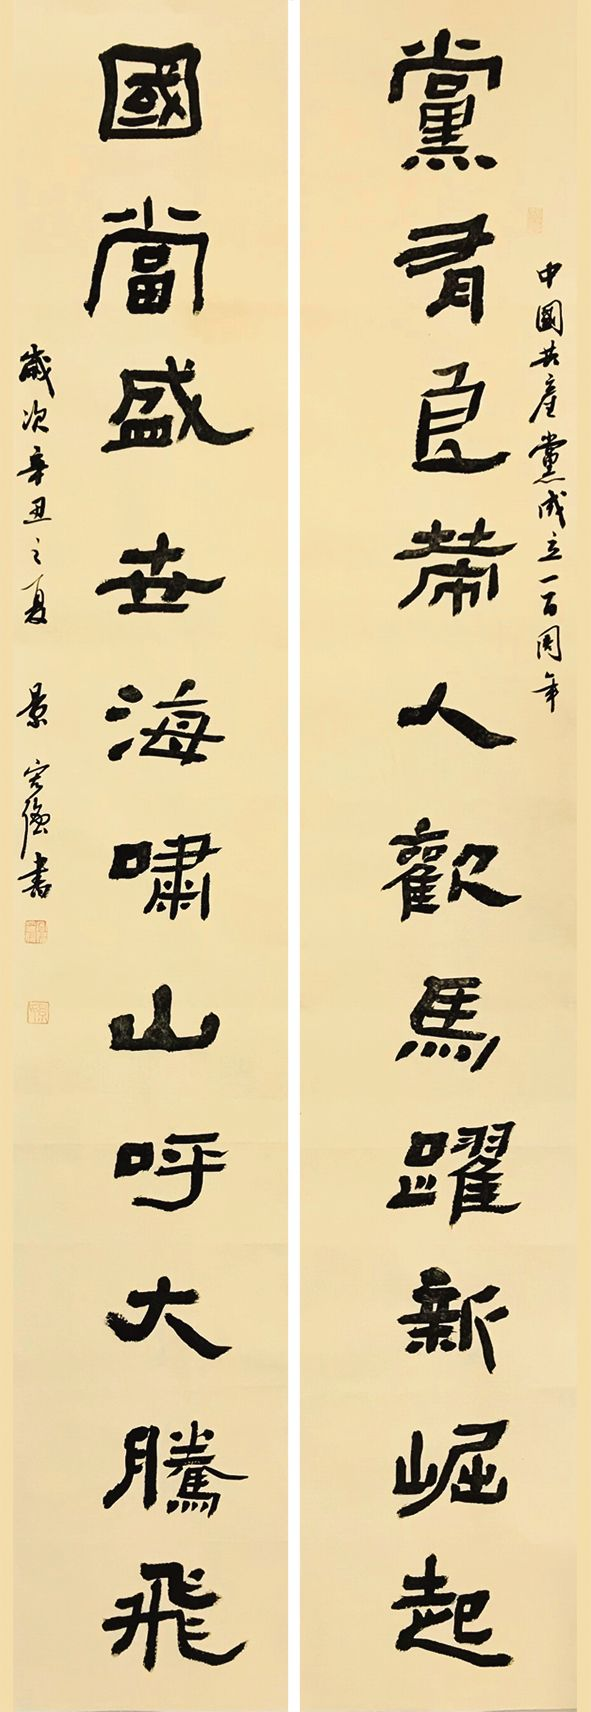 中國共產黨成立一百周年
黨有良帶人歡馬躍新崛起
國當盛世海嘯山呼大騰飛
歲次辛丑之夏 景 強書